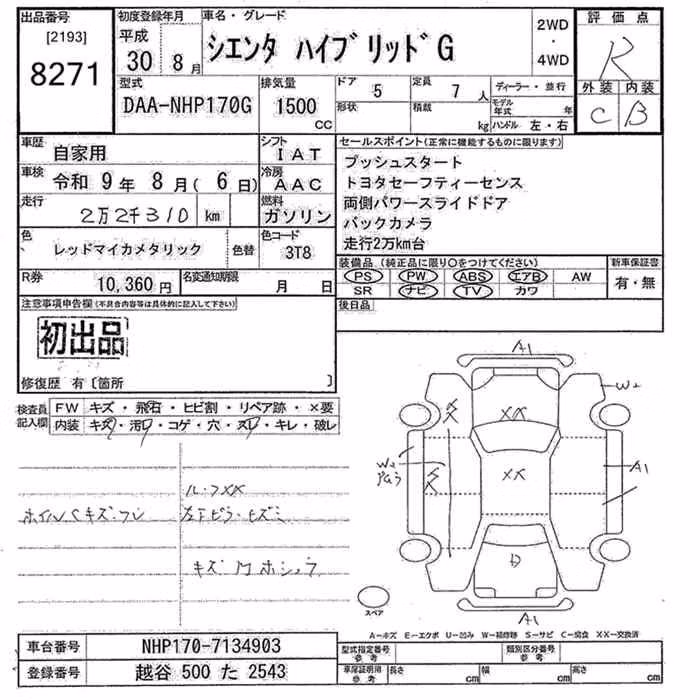 出品番号 初度登録年月 車名・グレード 2WD 評価点
[2193] 平成
8271 30年 8月 シエンタ ハイブリッドG ・ 4WD R
型式 排気量 ドア 5 定員 7人 ディーラー・並行 外装 内装
DAA-NHP170G 1500 CC 形状 積載 kg モデル年式 年 C B
ハンドル 左・右
車歴 自家用 シフト IAT セールスポイント(正常に機能するものに限ります)
車検 令和 9年 8月( 6日) 冷房 AAC プッシュスタート
トヨタセーフティーセンス
走行 2万2千310 km 燃料 ガソリン 両側パワースライドドア
バックカメラ
色 レッドマイカメタリック 色替 色コード 3T8 走行2万km台
R券 10,360円 名変通知期限 月 日 装備品(純正品に限り○をつけてください) 新車保証書
PS PW ABS エアB AW 有・無
SR ナビ TV カワ
注意事項申告欄(不具合内容等は具体的に記入して下さい) 後日品
初出品
修復歴 有〔箇所 〕
検査員記入欄 FW キズ・飛石・ヒビ割・リペア跡・×要
内装 キズ・汚レ・コゲ・穴・スレ・キレ・破レ
A1
W2
XX
W2
XX
A1
D
A1
ルーフXX
ホイルCキズ・フレ 左Fピラーヒズミ
スペア
A-キズ E-エクボ U-凹み W-補修跡 S-サビ C-腐食 XX-交換済
車台番号 NHP170-7134903 型式指定番号 参考 類別区分番号 参考
登録番号 越谷 500 た 2543 車庫証明用 参考 長さ cm 幅 cm 高さ cm